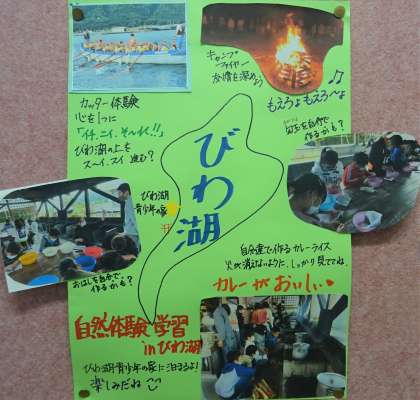 キャンプ
ファイヤー
友情を深めよう
もえろよもえろ〜よ♫
カッター体験
心を1つに
「イチ、ニイ、そ〜れ!!」
びわ湖の上を
ス〜イ、スイ 進む?
勾玉を自分で
作るかも?
びわ湖
びわ湖
青少年の家
おはしを自分で
作るかも?
自分達で作るカレーライス
火が消えないように、しっかり見ててね。
カレーがおいしい♥
自然体験学習
inびわ湖
びわ湖青少年の家に泊まるよ!
楽しみだね